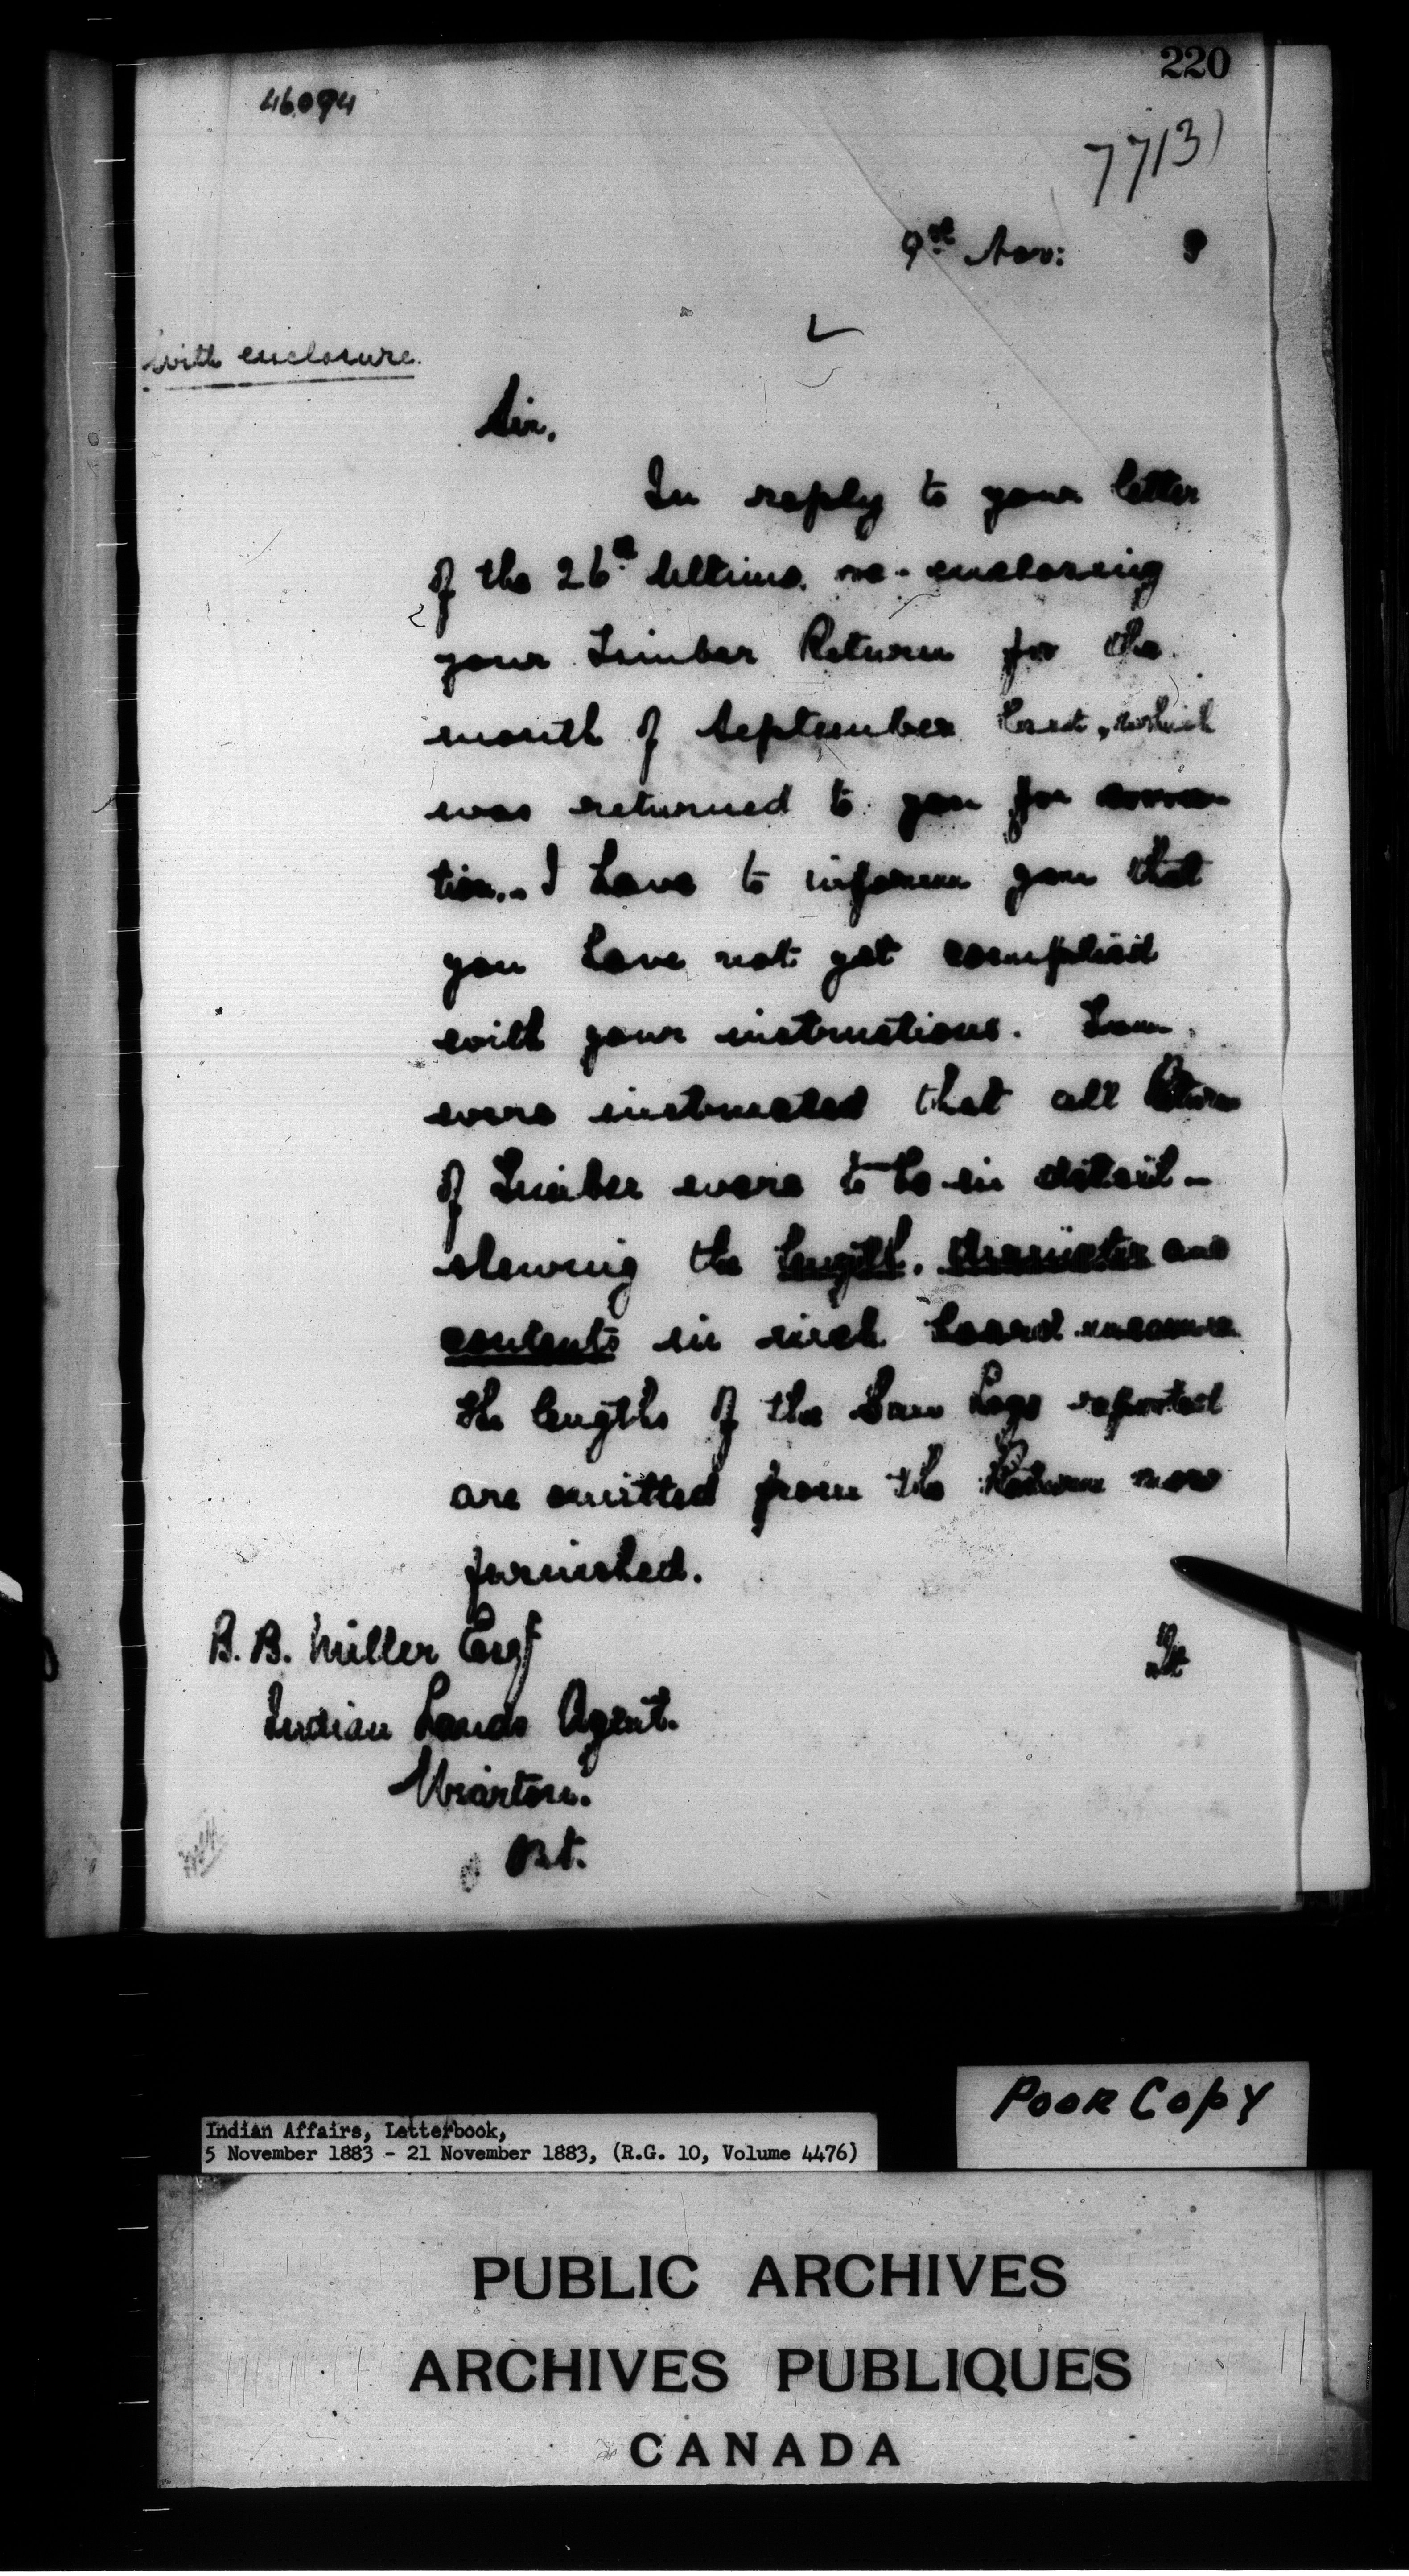 220
46094
7713
9th Nov: 3
With enclosure.
Sir,
In reply to your letter
of the 26th Ultimo, re-enclosing
your Timber Return for the
month of September last, which
was returned to you for correc
tion.. I have to inform you that
you have not yet complied
with your instructions. You
were instructed that all Returns
of Timber were to be in detail -
shewing the length, diameter and
contents in inch board measure
the lengths of the Saw Logs reported
are omitted from the Return now
furnished.
B. B. Miller Esqr
Indian Lands Agent.
Wiarton.
Ont.
Poor Copy
Indian Affairs, Letterbook,
5 November 1883 - 21 November 1883, (R.G. 10, Volume 4476)
PUBLIC ARCHIVES
ARCHIVES PUBLIQUES
CANADA